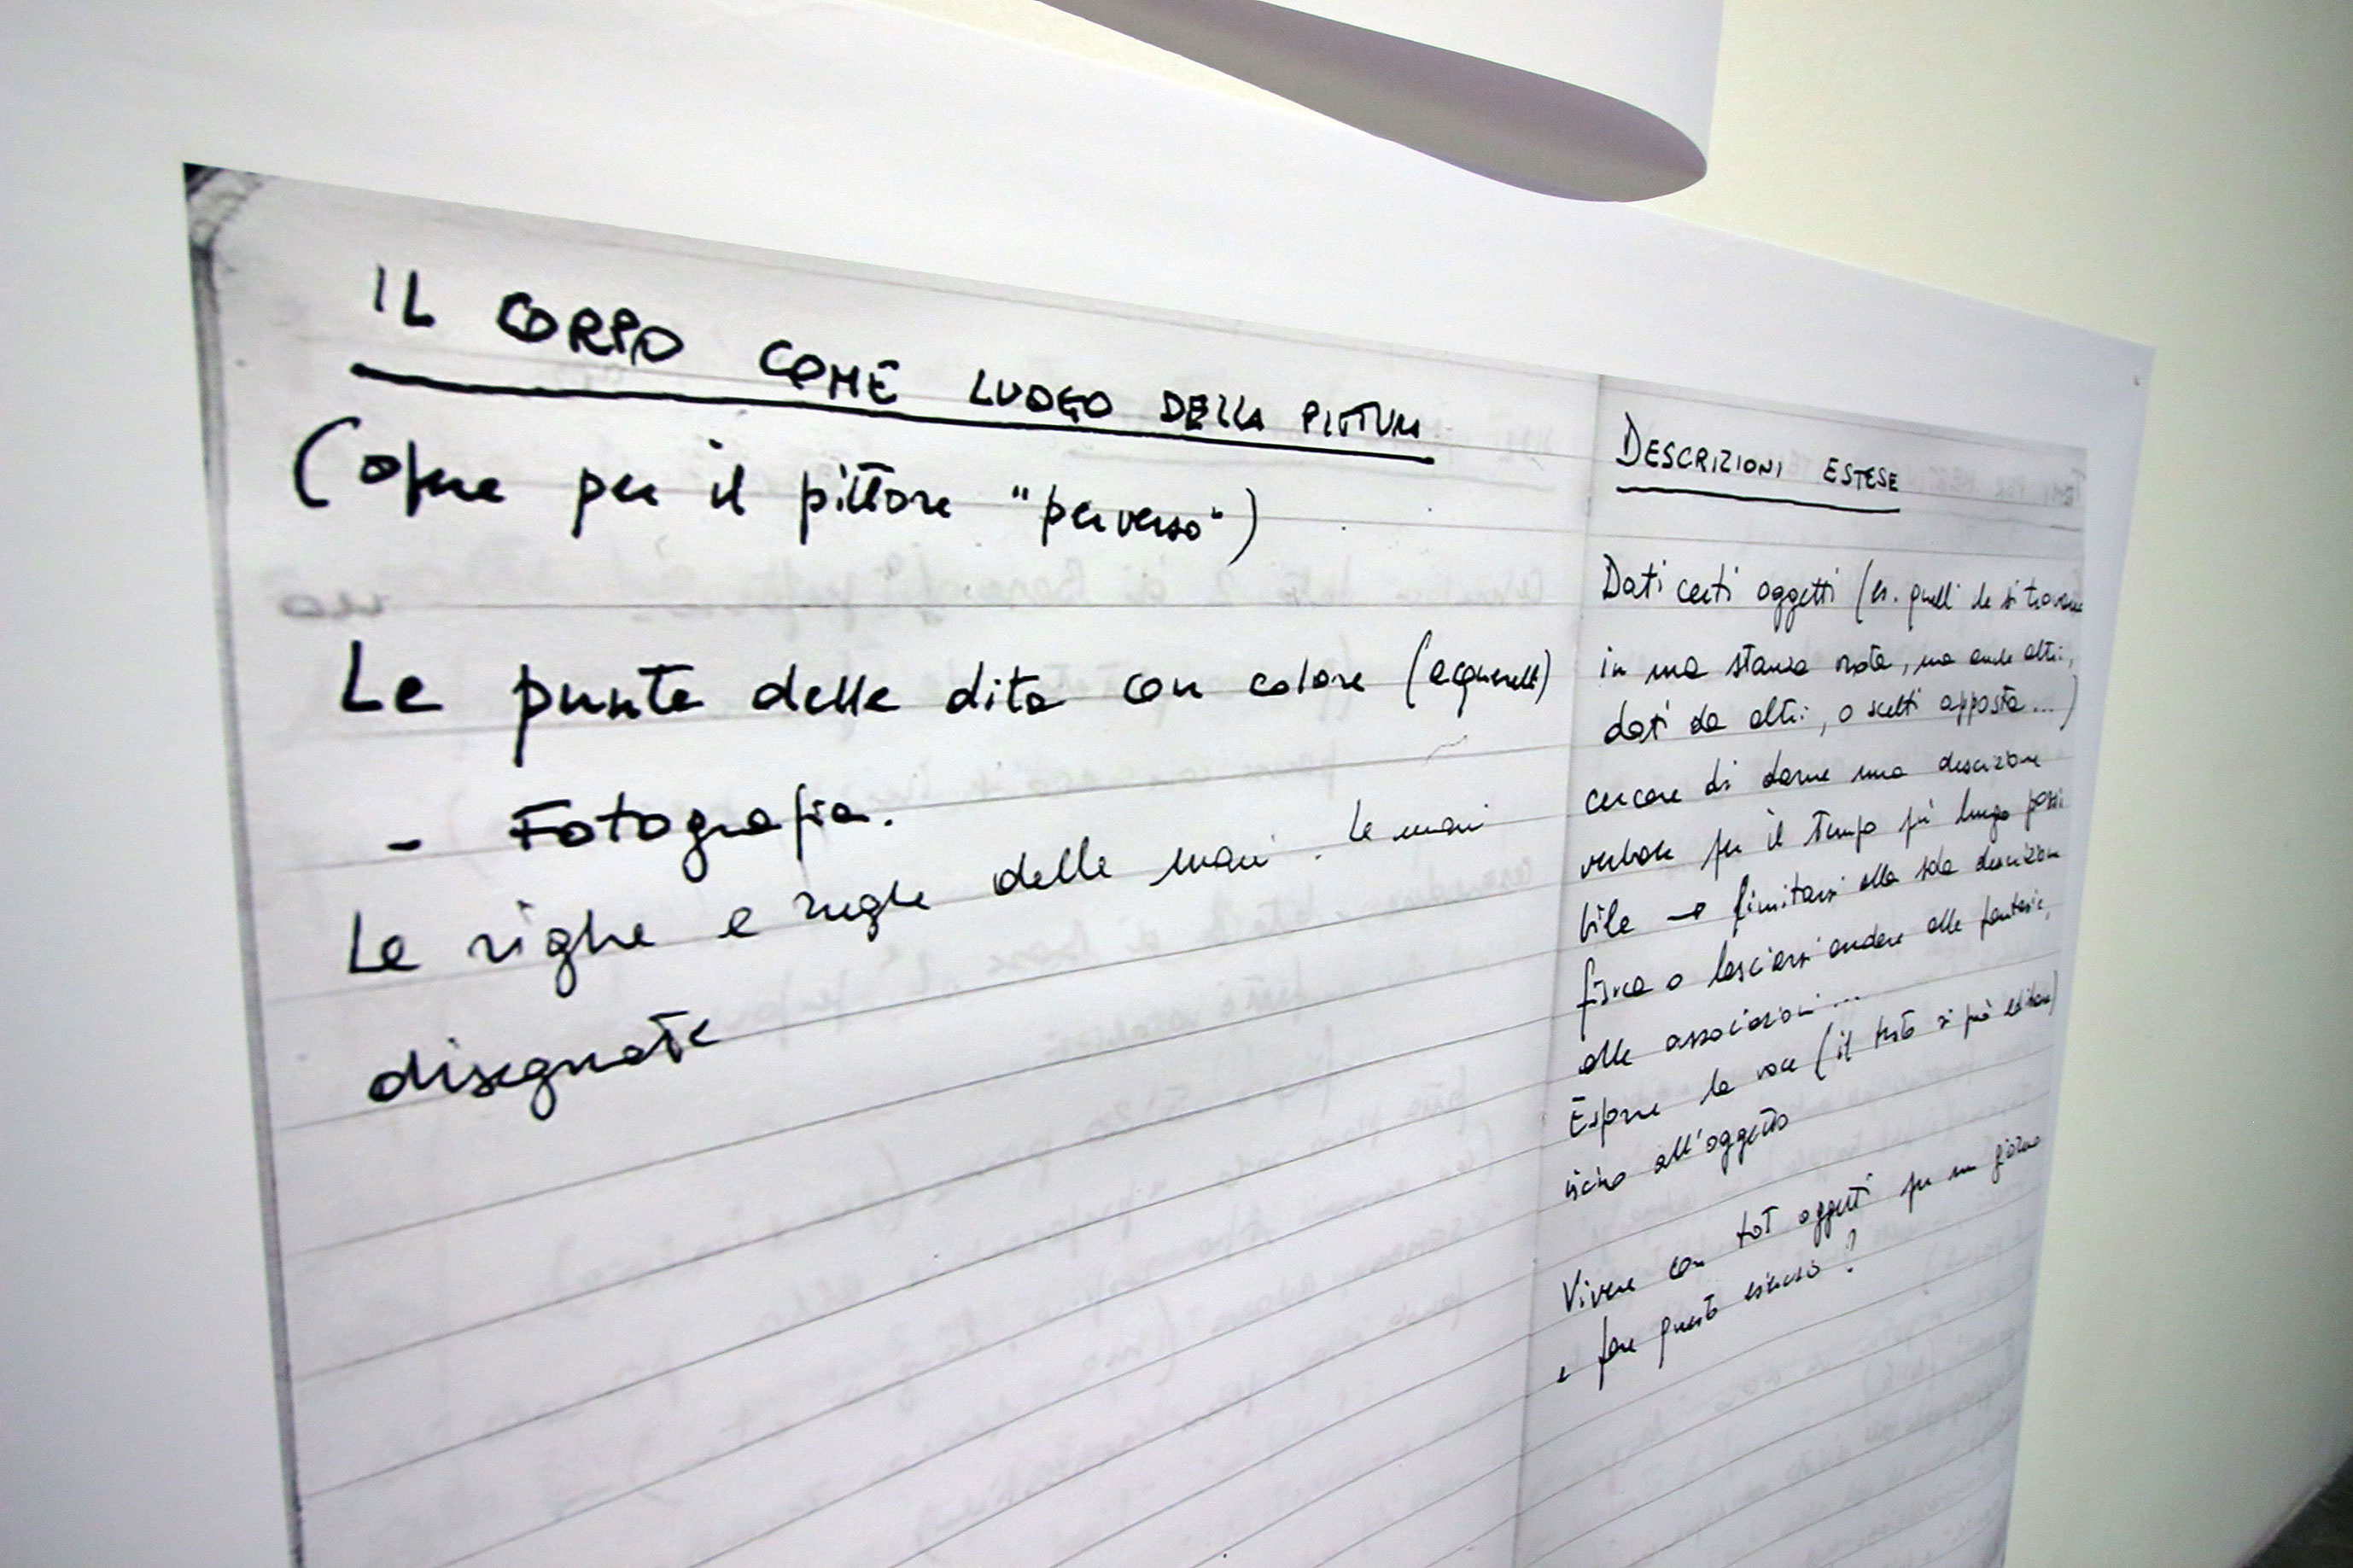 IL CORPO COME LUOGO DELLA PITTURA
(opere per il pittore "perverso")
Le punte delle dita con colore (acquerelli)
- Fotografia.
Le righe e rughe delle mani. Le mani
disegnate
DESCRIZIONI ESTESE
Dati certi oggetti (es. quelli che si trovano
in una stanza vuota, ma anche altri,
dati da altri, o scelti apposta...)
cercare di darne una descrizione
verbale per il tempo più lungo possi
bile → limitarsi alla sola descrizione
fisica o lasciarsi andare alle fantasie,
alle associazioni...
Esporre la voce (il testo si può editare)
vicino all'oggetto
Vivere con tot oggetti per un giorno
e fare questo esercizio?